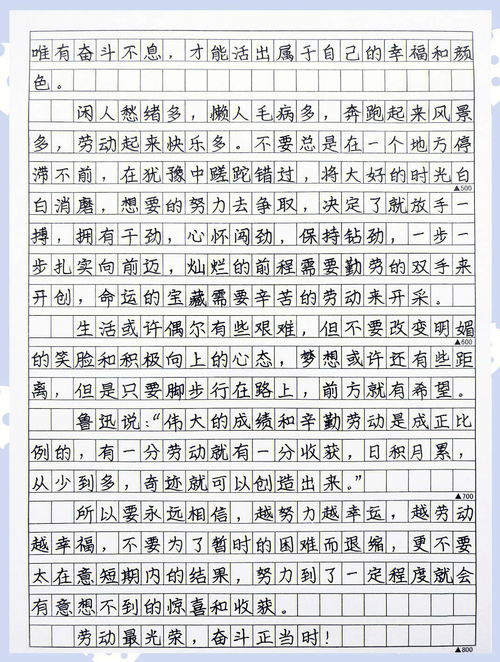 唯有奋斗不息，才能活出属于自己的幸福和颜
色。
闲人愁绪多，懒人毛病多，奔跑起来风景
多，劳动起来快乐多。不要总是在一个地方停
滞不前，在犹豫中蹉跎错过，将大好的时光白
▲500
白消磨，想要的努力去争取，决定了就放手一
搏，拥有干劲，心怀闯劲，保持钻劲，一步一
步扎实向前迈，灿烂的前程需要勤劳的双手来
开创，命运的宝藏需要辛苦的劳动来开采。
生活或许偶尔有些艰难，但不要改变明媚
▲600
的笑脸和积极向上的心态，梦想或许还有些距
离，但是只要脚步行在路上，前方就有希望。
鲁迅说：“伟大的成绩和辛勤劳动是成正比
例的，有一分劳动就有一分收获，日积月累，
从少到多，奇迹就可以创造出来。”
▲700
所以要永远相信，越努力越幸运，越劳动
越幸福，不要为了暂时的困难而退缩，更不要
太在意短期内的结果，努力到了一定程度就会
有意想不到的惊喜和收获。
劳动最光荣，奋斗正当时！
▲800